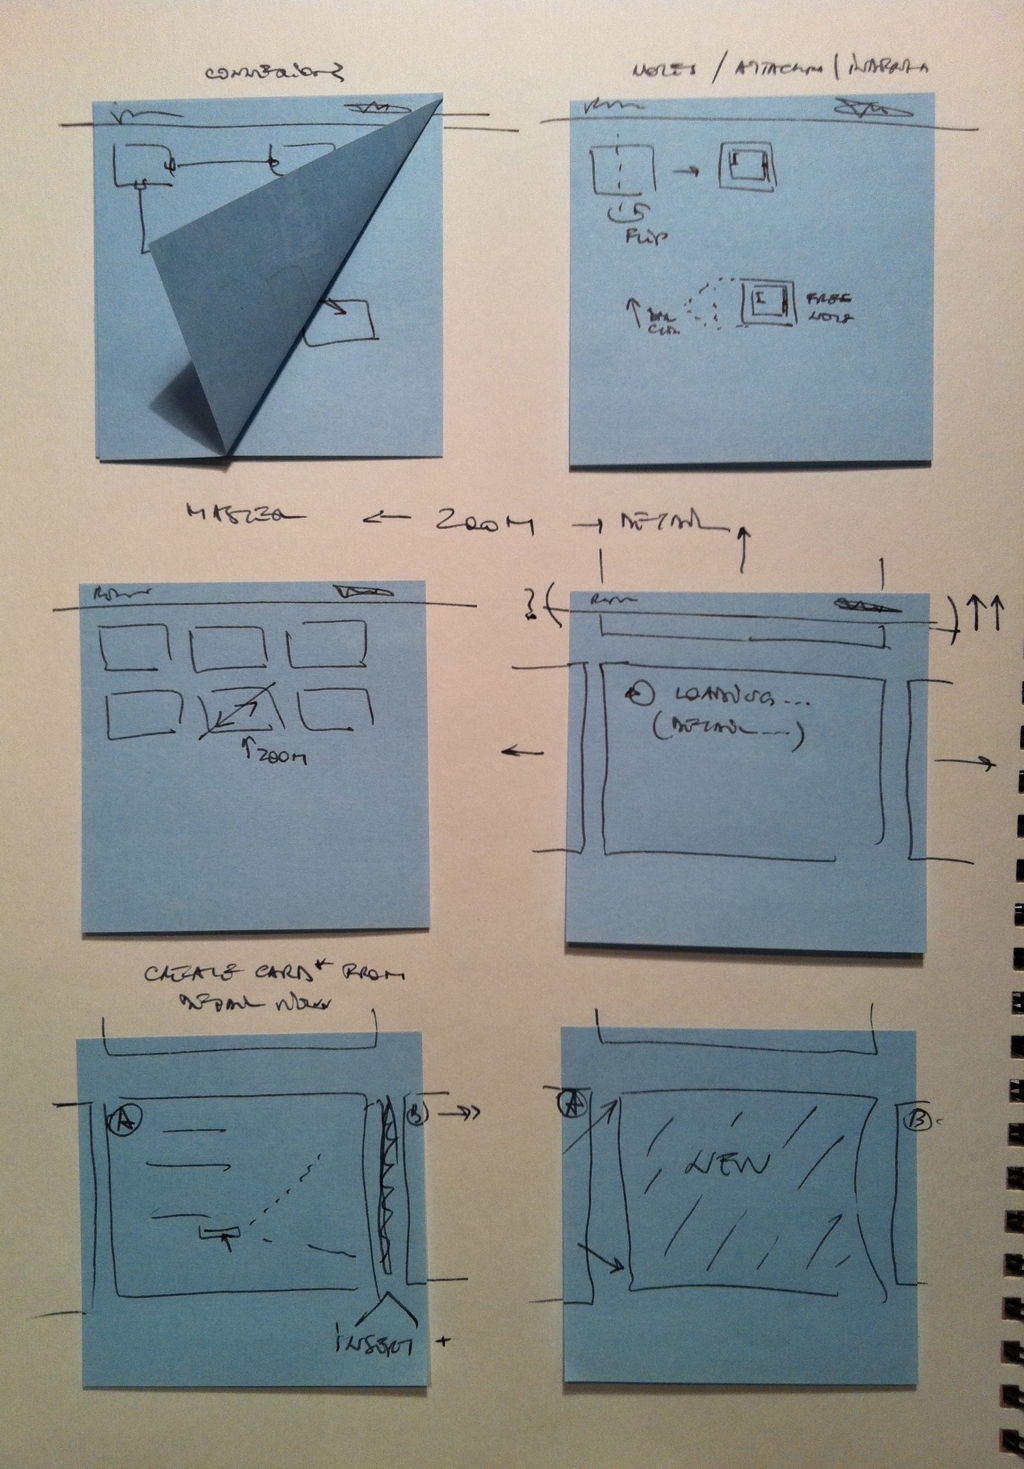 CONNECTIONS
NOTES /
FLIP
FREE
NOTE
MASTER ← ZOOM → DETAIL
↑ZOOM
LOADING...
(DETAIL...)
CREATE CARD* FROM
DETAIL VIEW
A
B
INSERT +
A
NEW
B